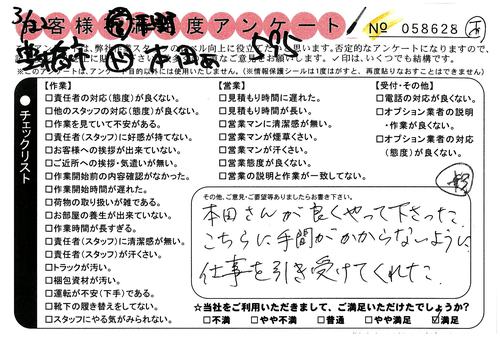 3/12
お客様満足度アンケート
№ 058628
595
本田
・このアンケートは、弊社スタッフのレベル向上に役立てたいと思います。否定的なアンケートになりますので、
チェックリスト
【作業】
□責任者の対応(態度)が良くない。
□他のスタッフの対応(態度)が良くない。
□作業を見ていて不安がある。
□責任者(スタッフ)に好感が持てない。
□お客様への挨拶が出来ていない。
□ご近所への挨拶・気遣いが無い。
□作業開始前の内容確認がなかった。
□作業開始時間が遅れた。
□荷物の取り扱いが雑である。
□お部屋の養生が出来ていない。
□作業時間が長すぎる。
□責任者(スタッフ)に清潔感が無い。
□責任者(スタッフ)が汗くさい。
□トラックが汚い。
□梱包資材が汚い。
□運転が不安(下手)である。
□靴下の履き替えをしてない。
□スタッフにやる気がみられない。
【営業】
□見積もり時間に遅れた。
□見積もり時間が長い。
□営業マンに清潔感が無い。
□営業マンが煙草くさい。
□営業マンが汗くさい。
□営業態度が良くない。
□営業の説明と作業が一致してない。
【受付・その他】
□電話の対応が良くない。
□オプション業者の説明
・作業が良くない。
□オプション業者の対応
(態度)が良くない。
その他、ご意見・ご要望等ありましたらお書き下さい。
本田さんが良くやって下さった。
こちらに手間がかからないように
仕事を引き受けてくれた。
☆当社をご利用いただきまして、ご満足いただけたでしょうか?
□不満 □やや不満 □普通 □やや満足 ☑満足